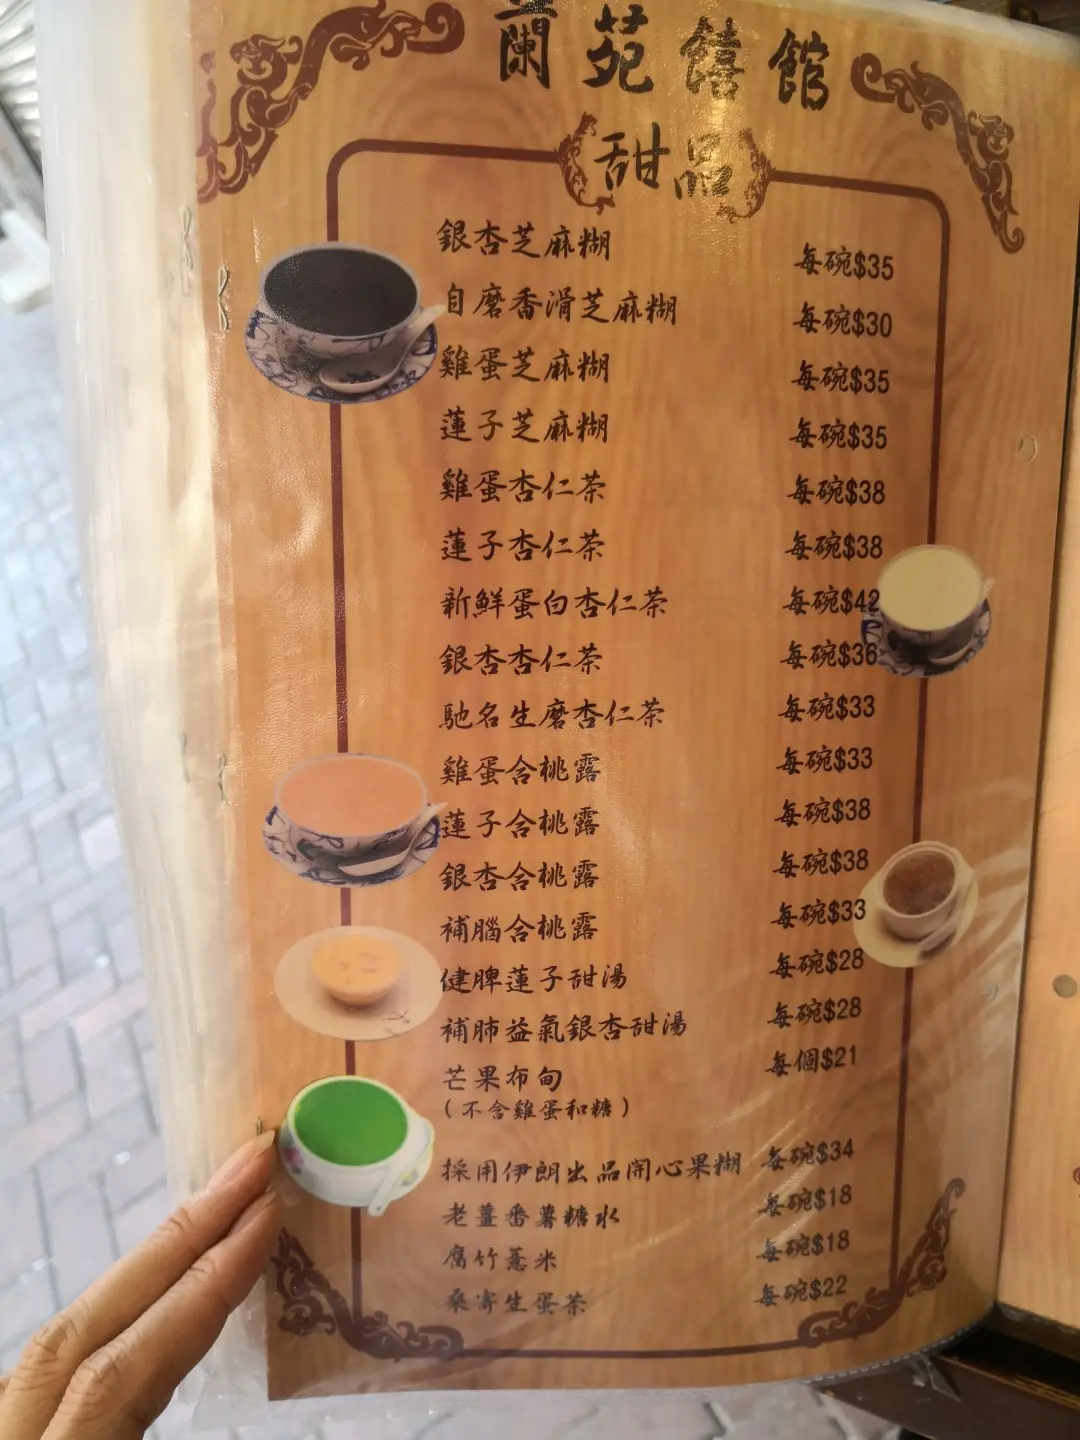 蘭苑饎館
甜品
銀杏芝麻糊 每碗$35
自磨香滑芝麻糊 每碗$30
雞蛋芝麻糊 每碗$35
蓮子芝麻糊 每碗$35
雞蛋杏仁茶 每碗$38
蓮子杏仁茶 每碗$38
新鮮蛋白杏仁茶 每碗$42
銀杏杏仁茶 每碗$36
馳名生磨杏仁茶 每碗$33
雞蛋合桃露 每碗$33
蓮子合桃露 每碗$38
銀杏合桃露 每碗$38
補腦合桃露 每碗$33
健脾蓮子甜湯 每碗$28
補肺益氣銀杏甜湯 每碗$28
芒果布甸 每個$21
(不含雞蛋和糖)
採用伊朗出品開心果糊 每碗$34
老薑番薯糖水 每碗$18
腐竹薏米 每碗$18
桑寄生蛋茶 每碗$22